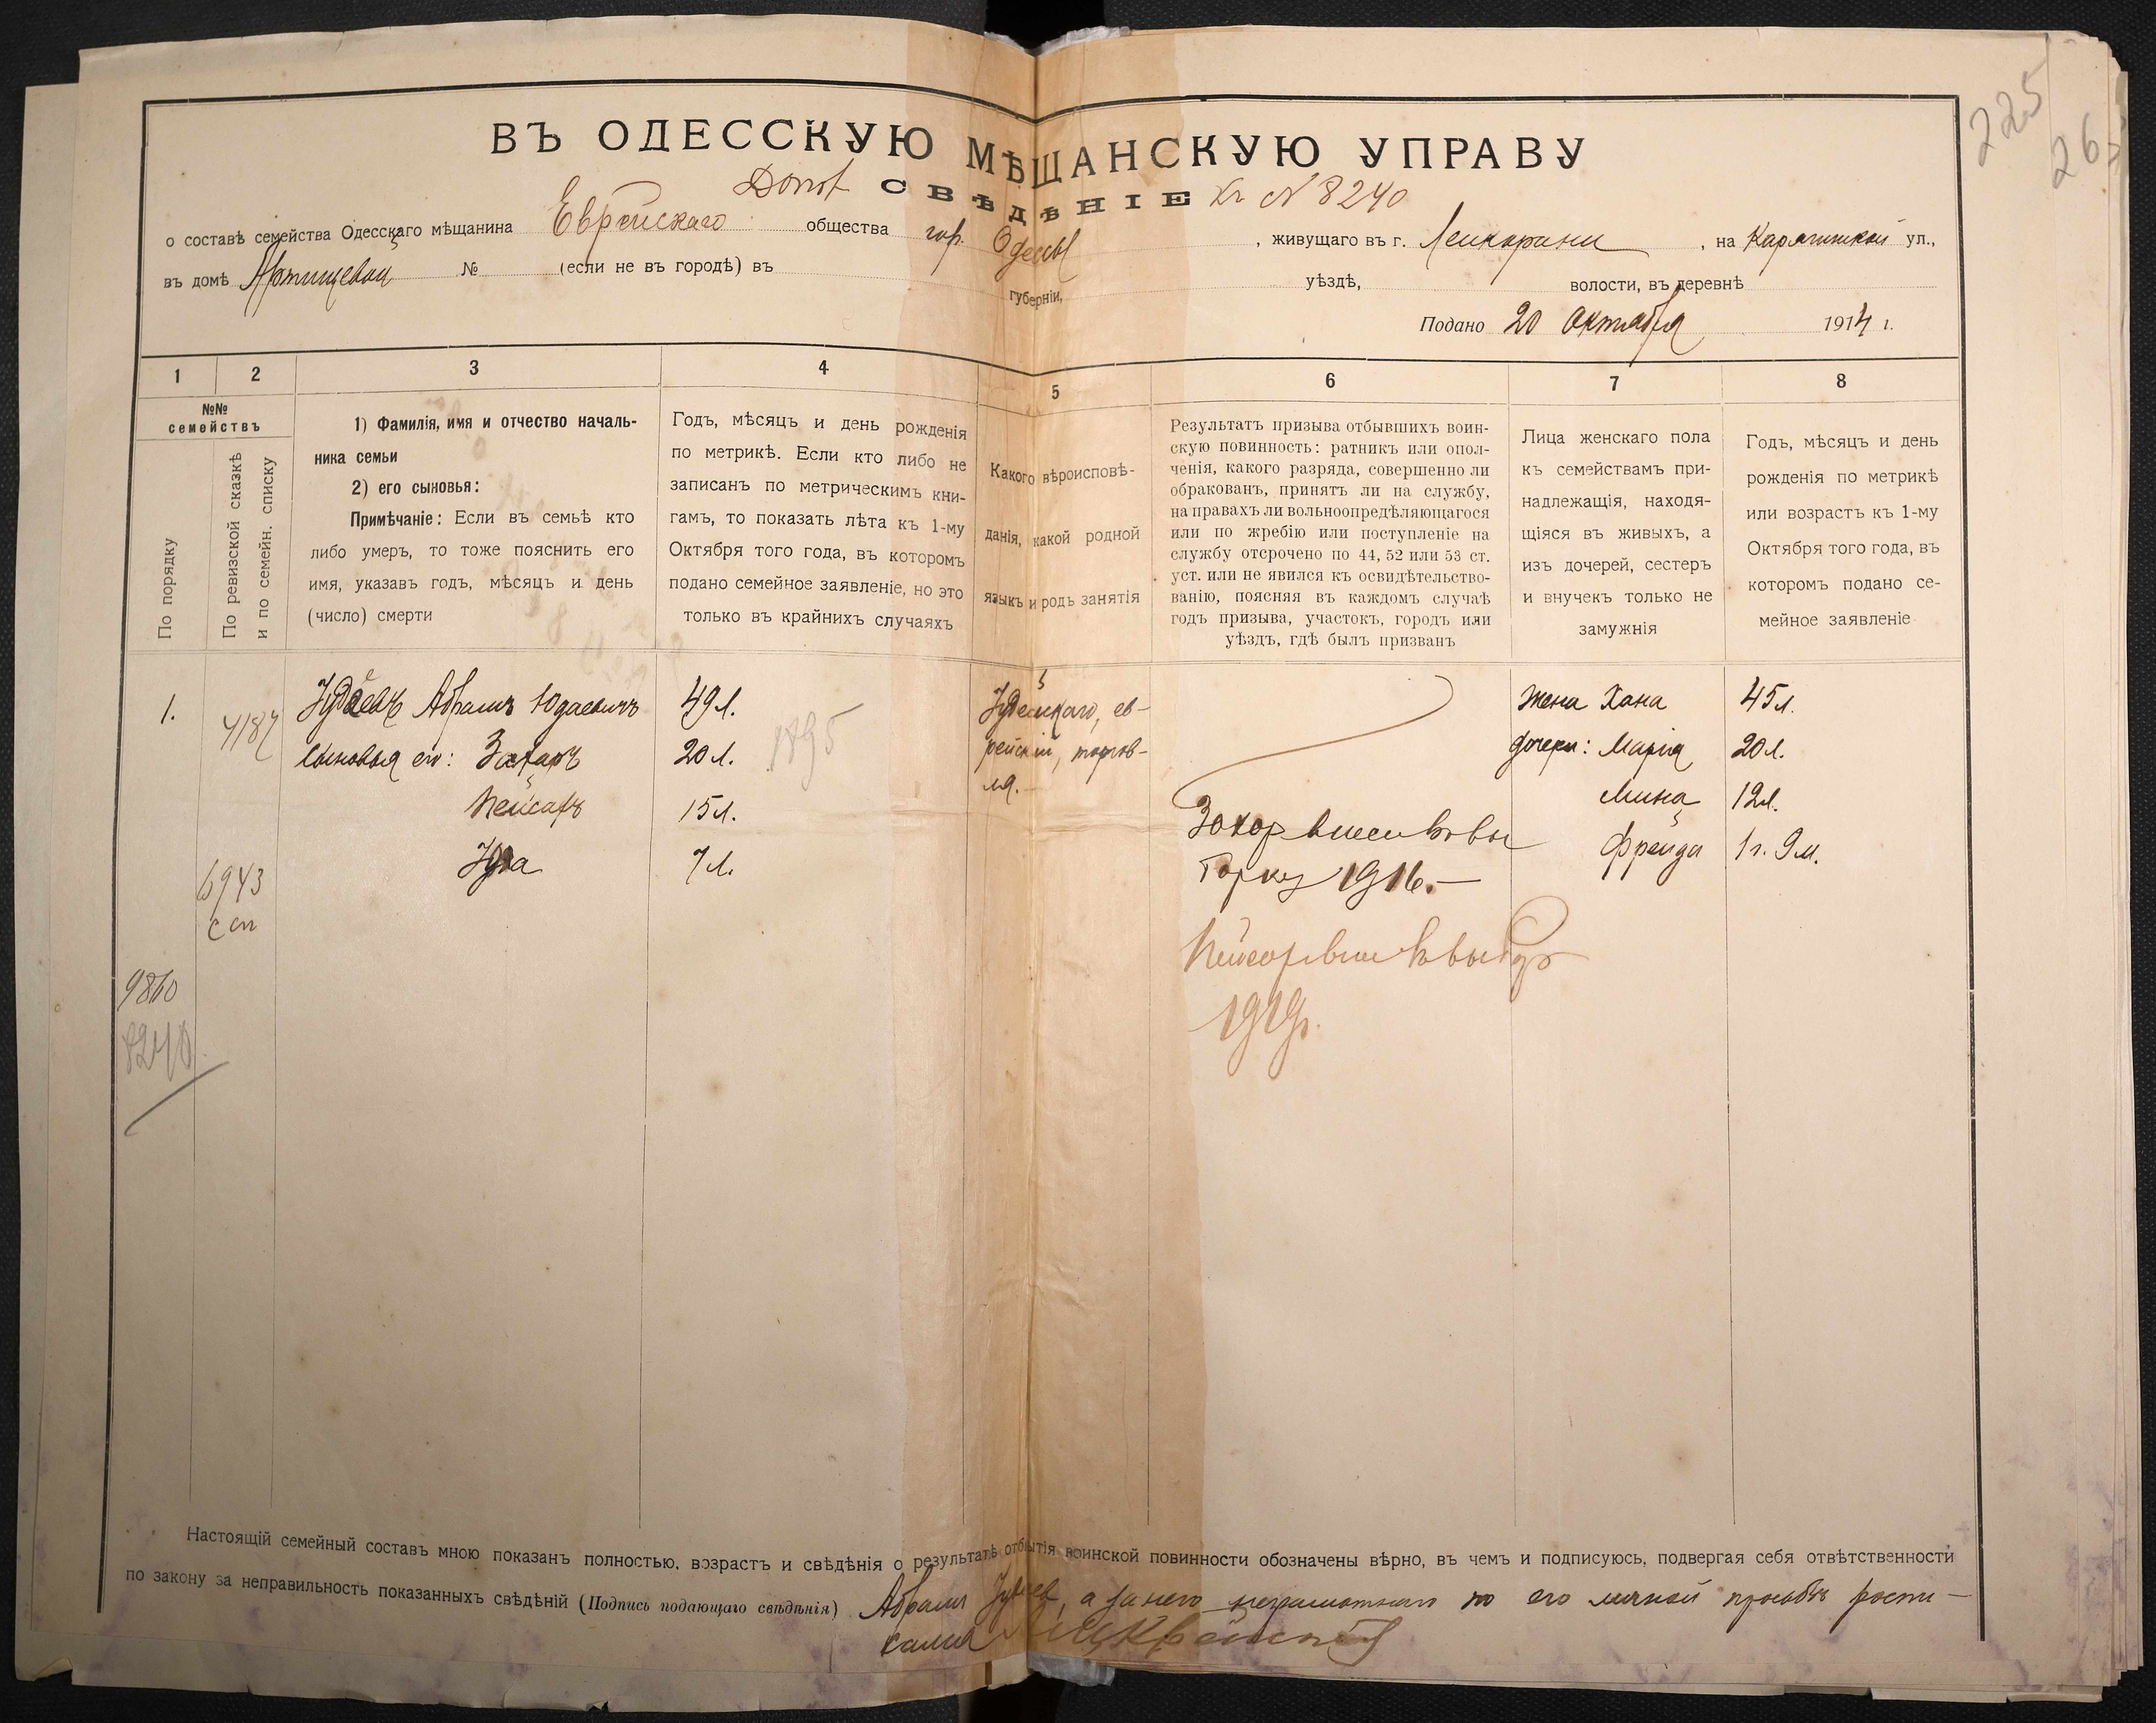 225
26
ВЪ ОДЕССКУЮ МѢЩАНСКУЮ УПРАВУ
СВѢДѢНІЕ
Къ № 8240
о составѣ семейства Одесскаго мѣщанина Еврейскаго общества гор. Одессы, живущаго въ г. Ленкорани, на ул.,
въ домѣ № (если не въ городѣ) въ губерніи, уѣздѣ, волости, въ деревнѣ
Подано 20 Октября 1914 г.
1 2 3 4 5 6 7 8
№№ семействъ
По порядку
По ревизской сказкѣ и по семейн. списку
1) Фамилія, имя и отчество началь-
ника семьи
2) его сыновья:
Примѣчаніе: Если въ семьѣ кто
либо умеръ, то тоже пояснить его
имя, указавъ годъ, мѣсяцъ и день
(число) смерти
Годъ, мѣсяцъ и день рожденія
по метрикѣ. Если кто либо не
записанъ по метрическимъ кни-
гамъ, то показать лѣта къ 1-му
Октября того года, въ которомъ
подано семейное заявленіе, но это
только въ крайнихъ случаяхъ
Какого вѣроисповѣ-
данія, какой родной
языкъ и родъ занятія
Результатъ призыва отбывшихъ воин-
скую повинность: ратникъ или опол-
ченія, какого разряда, совершенно ли
обракованъ, принятъ ли на службу,
на правахъ ли вольноопредѣляющагося
или по жребію или поступленіе на
службу отсрочено по 44, 52 или 53 ст.
уст. или не явился къ освидѣтельство-
ванію, поясняя въ каждомъ случаѣ
годъ призыва, участокъ, городъ или
уѣздъ, гдѣ былъ призванъ
Лица женскаго пола
къ семействамъ при-
надлежащія, находя-
щіяся въ живыхъ, а
изъ дочерей, сестеръ
и внучекъ только не
замужнія
Годъ, мѣсяцъ и день
рожденія по метрикѣ
или возрастъ къ 1-му
Октября того года, въ
которомъ подано се-
мейное заявленіе
1. 4187 Іудаевъ Абрамъ Юдаевичъ 49 л. Іудейскаго, ев- Жена Хана 45 л.
сыновья его: Захаръ 20 л. 1895 рейскій, торгов- дочери: Марія 20 л.
ля.
Пейсахъ 15 л. Мина 12 л.
Іуда 7 л. Фрейда 1 г. 9 м.
Захор внесен в овы
1916.
6943
сп
9860
8240
1919.
Настоящій семейный составъ мною показанъ полностью, возрастъ и свѣдѣнія о результатѣ отбытія воинской повинности обозначены вѣрно, въ чемъ и подписуюсь, подвергая себя отвѣтственности
по закону за неправильность показанныхъ свѣдѣній (Подпись подающаго свѣдѣнія) Абрамъ Іудаевъ, а за него неграмотнаго по его личной просьбѣ роспи-
сался